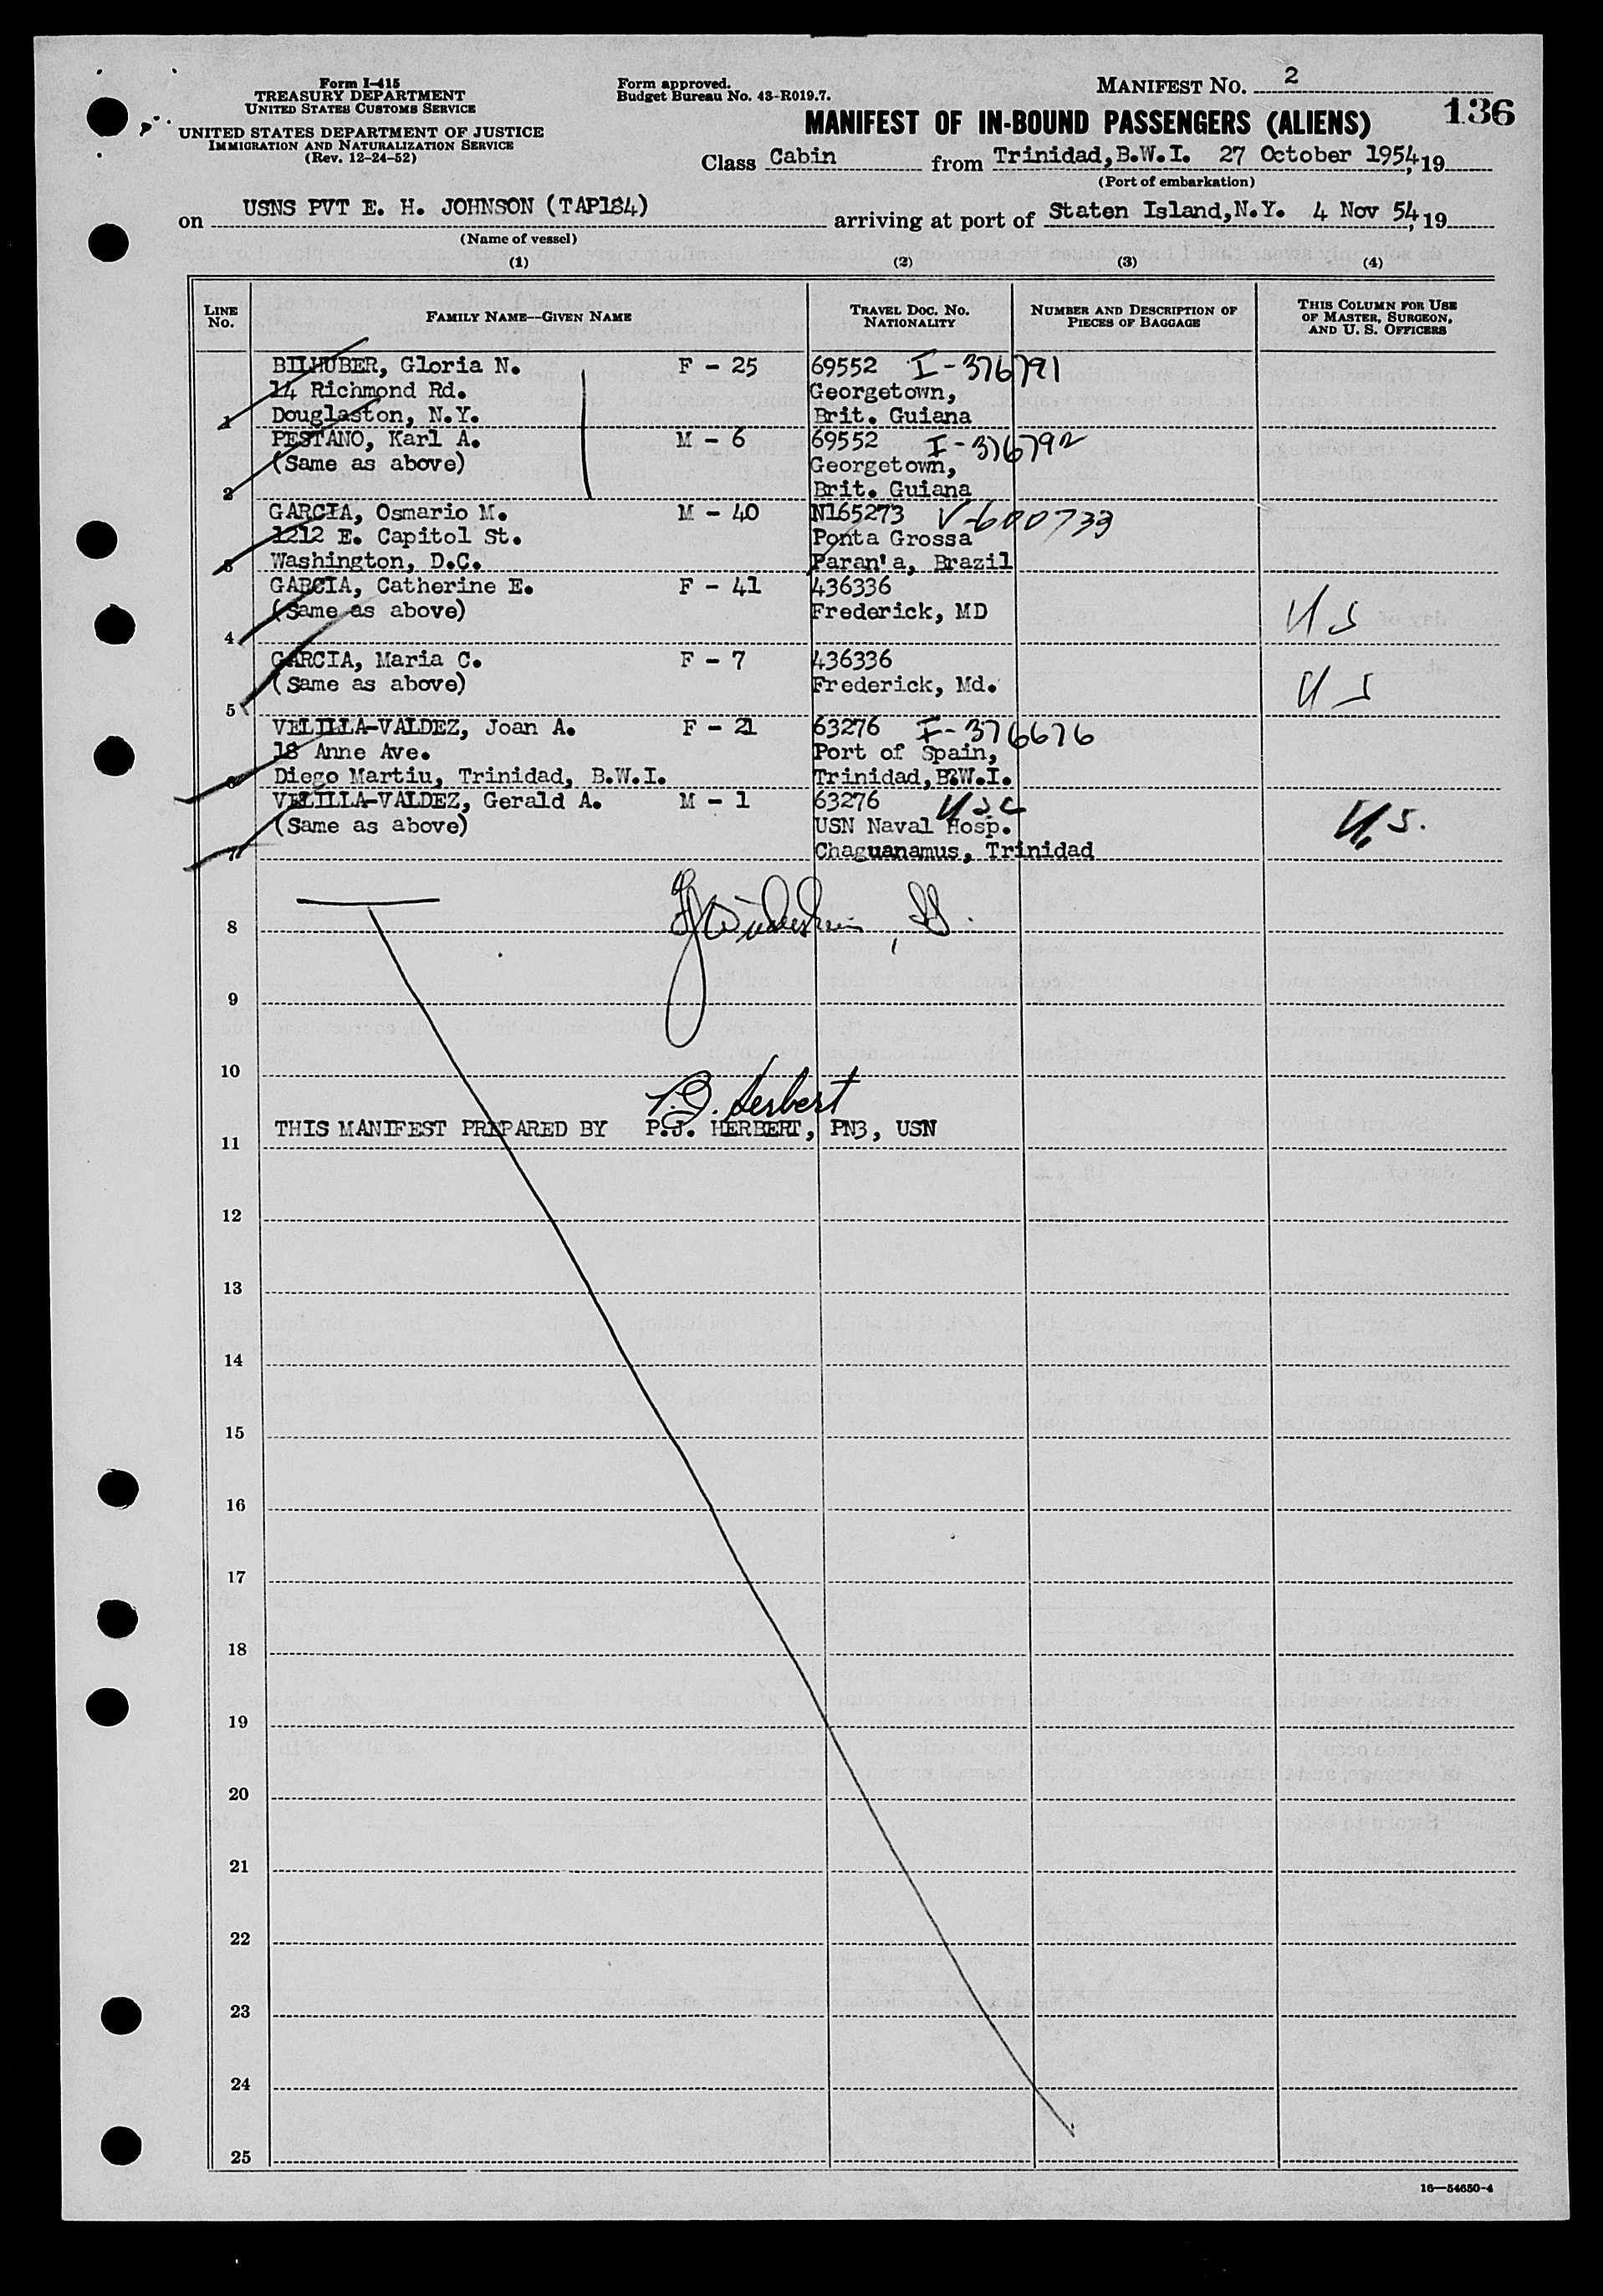 Form I-415
TREASURY DEPARTMENT
UNITED STATES CUSTOMS SERVICE
UNITED STATES DEPARTMENT OF JUSTICE
IMMIGRATION AND NATURALIZATION SERVICE
(Rev. 12-24-52)
Form approved.
Budget Bureau No. 43-R019.7.
MANIFEST NO. 2
136
MANIFEST OF IN-BOUND PASSENGERS (ALIENS)
Class Cabin from Trinidad, B.W.I. 27 October 1954, 19
(Port of embarkation)
on USNS PVT E. H. JOHNSON (TAP184) arriving at port of Staten Island, N.Y. 4 Nov 54, 19
(Name of vessel)
(1) (2) (3) (4)
LINE NO. FAMILY NAME—GIVEN NAME TRAVEL DOC. NO. NATIONALITY NUMBER AND DESCRIPTION OF PIECES OF BAGGAGE THIS COLUMN FOR USE OF MASTER, SURGEON, AND U. S. OFFICERS
BILHUBER, Gloria N. F - 25 69552 I-376791
14 Richmond Rd. Georgetown,
1 Douglaston, N.Y. Brit. Guiana
PESTANO, Karl A. M - 6 69552 I-376792
(Same as above) Georgetown,
2 Brit. Guiana
GARCIA, Osmario M. M - 40 N165273 V-600733
1212 E. Capitol St. Ponta Grossa
3 Washington, D.C. Paran'a, Brazil
GARCIA, Catherine E. F - 41 436336
(Same as above) Frederick, MD US
4
GARCIA, Maria C. F - 7 436336
(Same as above) Frederick, Md. US
5
VELILLA-VALDEZ, Joan A. F - 21 63276 I-376676
18 Anne Ave. Port of Spain,
6 Diego Martiu, Trinidad, B.W.I. Trinidad, B.W.I.
VELILLA-VALDEZ, Gerald A. M - 1 63276 USC
(Same as above) USN Naval Hosp. U.S.
7 Chaguanamus, Trinidad
8
9
10
P.J. Herbert
11 THIS MANIFEST PREPARED BY P.J. HERBERT, PN3, USN
12
13
14
15
16
17
18
19
20
21
22
23
24
25
16—54650-4